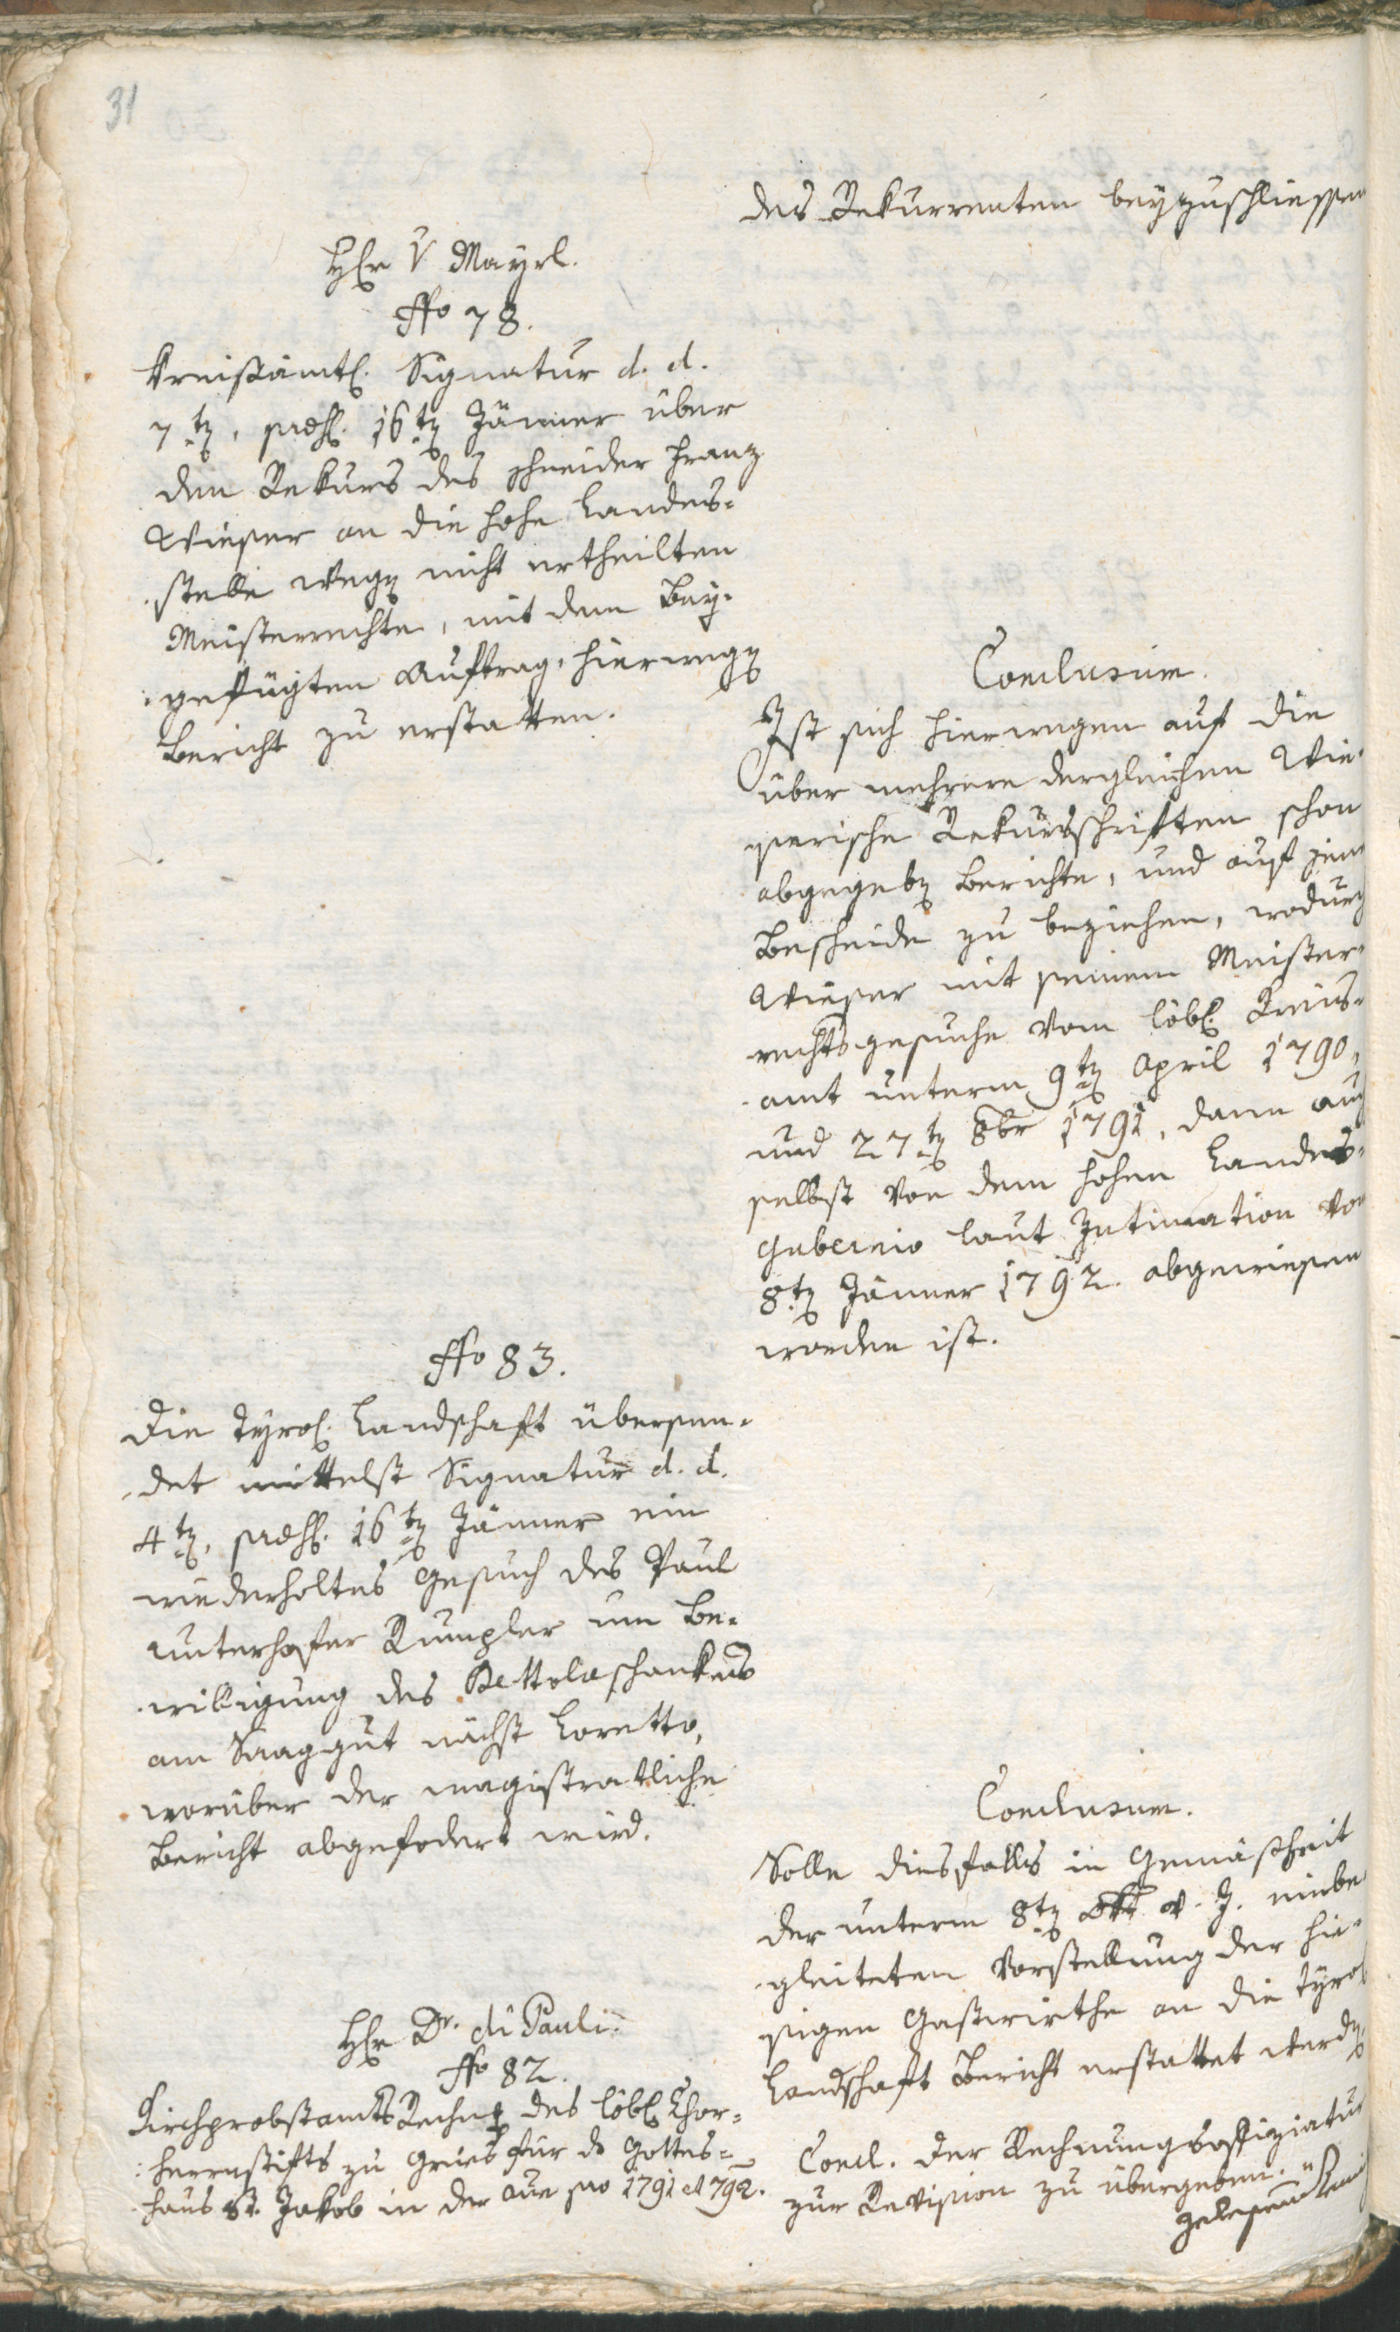 31
des Rekurrenten beyzuschliessen
Hr v Mayrl.
No 78.
Kreißämtl. Signatur d. d.
7ten, präs. 16ten Jänner über
den Rekurs des Schneider Franz
Wieser an die hohe Landes-
stelle wegen nicht ertheilten
Meisterrechte, mit dem Bey-
gefügten Auftrag, hierwegen
Bericht zu erstatten.
Conclusum.
Ist sich hierwegen auf die
über mehrere dergleichen Wie-
serische Rekursschriften schon
abgegeben Berichte, und auf jene
Bescheide zu beziehen, wodurch
Wieser mit seinem Meister-
rechtsgesuche vom löbl. Kreis-
amt unterm 9ten April 1790,
und 27ten 8br 1791, dann auch
selbst von dem hohen Landes-
Gubernio laut Intimation vom
8ten Jänner 1792. abgewiesen
worden ist.
No 83.
Die Tyrol. Landschaft übersen-
det mittelst Signatur d. d.
4ten, präs. 16ten Jänner ein
wiederholtes Gesuch des Paul
Unterhofer Rumpler um Be-
willigung des Bettolaschankes
am Saaggut nächst Loretto,
worüber der magistratliche
Bericht abgefodert wird.
Conclusum.
Solle diesfalls in Gemäßheit
der unterm 8ten v. J. einbe-
gleiteten Vorstellung der hie-
sigen Gastwirthe an die Tyrol.
Landschaft Bericht erstattet werden.
Hr Dr. di Pauli.
No 82.
KirchprobstamtsRechng des löbl. Chor-
herrnstifts zu Gries für das Gottes-
haus St. Jakob in der Aue pro 1791 et 792.
Concl. Der Rechnungsoffiziatur
zur Revision zu übergeben.